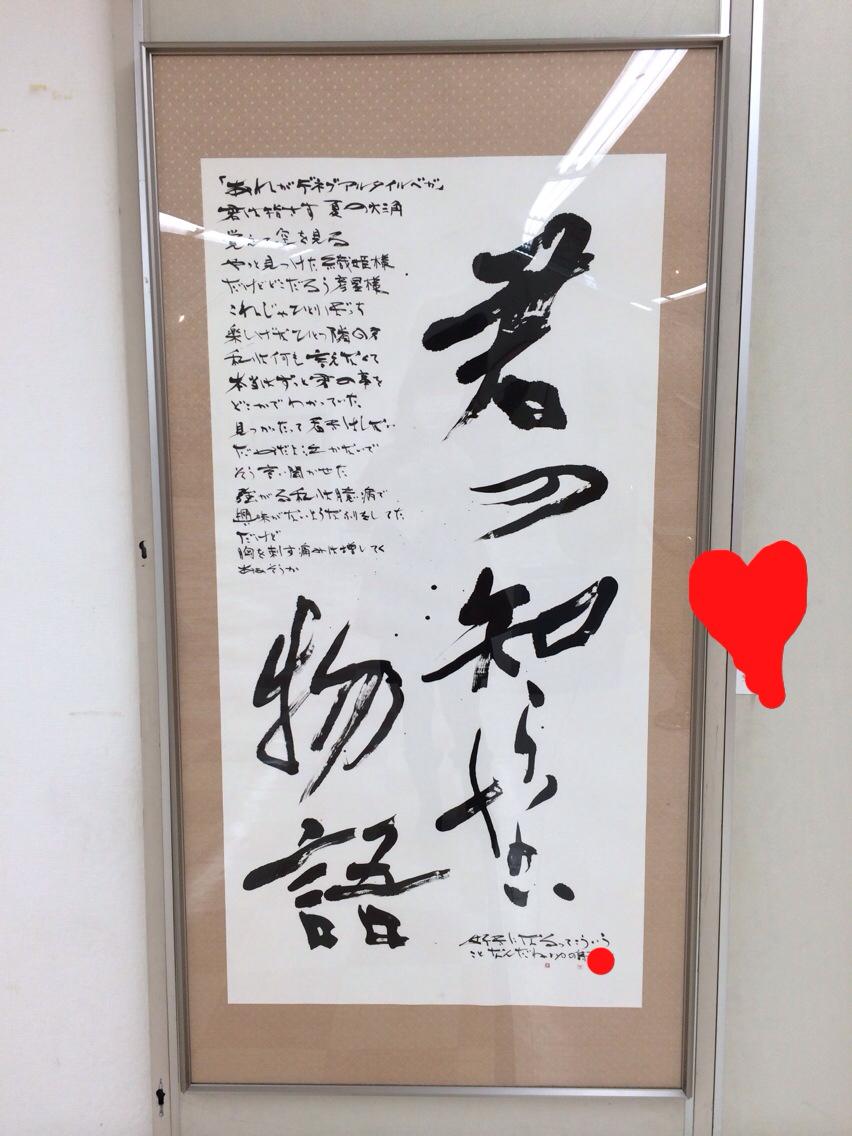 君の知らない
物語
「あれがデネブアルタイルベガ」
君は指さす 夏の大三角
覚えて空を見る
やっと見つけた織姫様
だけどどこだろう彦星様
これじゃひとりぼっち
楽しげなひとつ隣の君
私は何も言えなくて
本当はずっと君の事を
どこかでわかっていた
見つかったって届きはしない
だめだよ泣かないで
そう言い聞かせた
強がる私は臆病で
興味がないようなふりをしてた
だけど
胸を刺す痛みは増してく
ああそうか
好きになるってこういう
ことなんだね